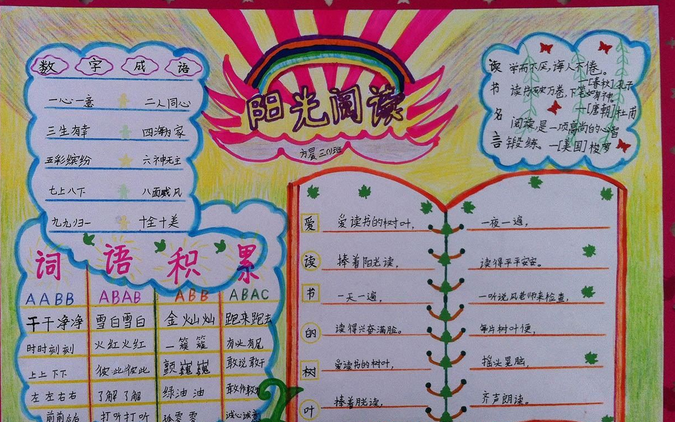 阳光阅读
三(1)班
数字成语
一心一意 二人同心
三生有幸 四海为家
五彩缤纷 六神无主
七上八下 八面威风
九九归一 十全十美
读书名言
学而不厌,诲人不倦。
—[春秋]孔子
读书破万卷,下笔如有神。
—[唐朝]杜甫
阅读是一项高尚的心智
锻练。—[美国]梭罗
词语积累
AABB ABAB ABB ABAC
干干净净 雪白雪白 金灿灿 跑来跑去
时时刻刻 火红火红 一簇簇 有头有尾
上上下下 彼此彼此 颤巍巍 敢说敢干
左左右右 了解了解 绿油油
打听打听 诚心诚意
爱读书的树叶
爱读书的树叶, 一夜一遍,
捧着阳光读, 读得平平安安。
一天一遍, 一听说风老师来检查,
读得兴奋满脸。 每片树叶便,
爱读书的树叶, 摇头晃脑,
捧着朗读, 齐声朗读。